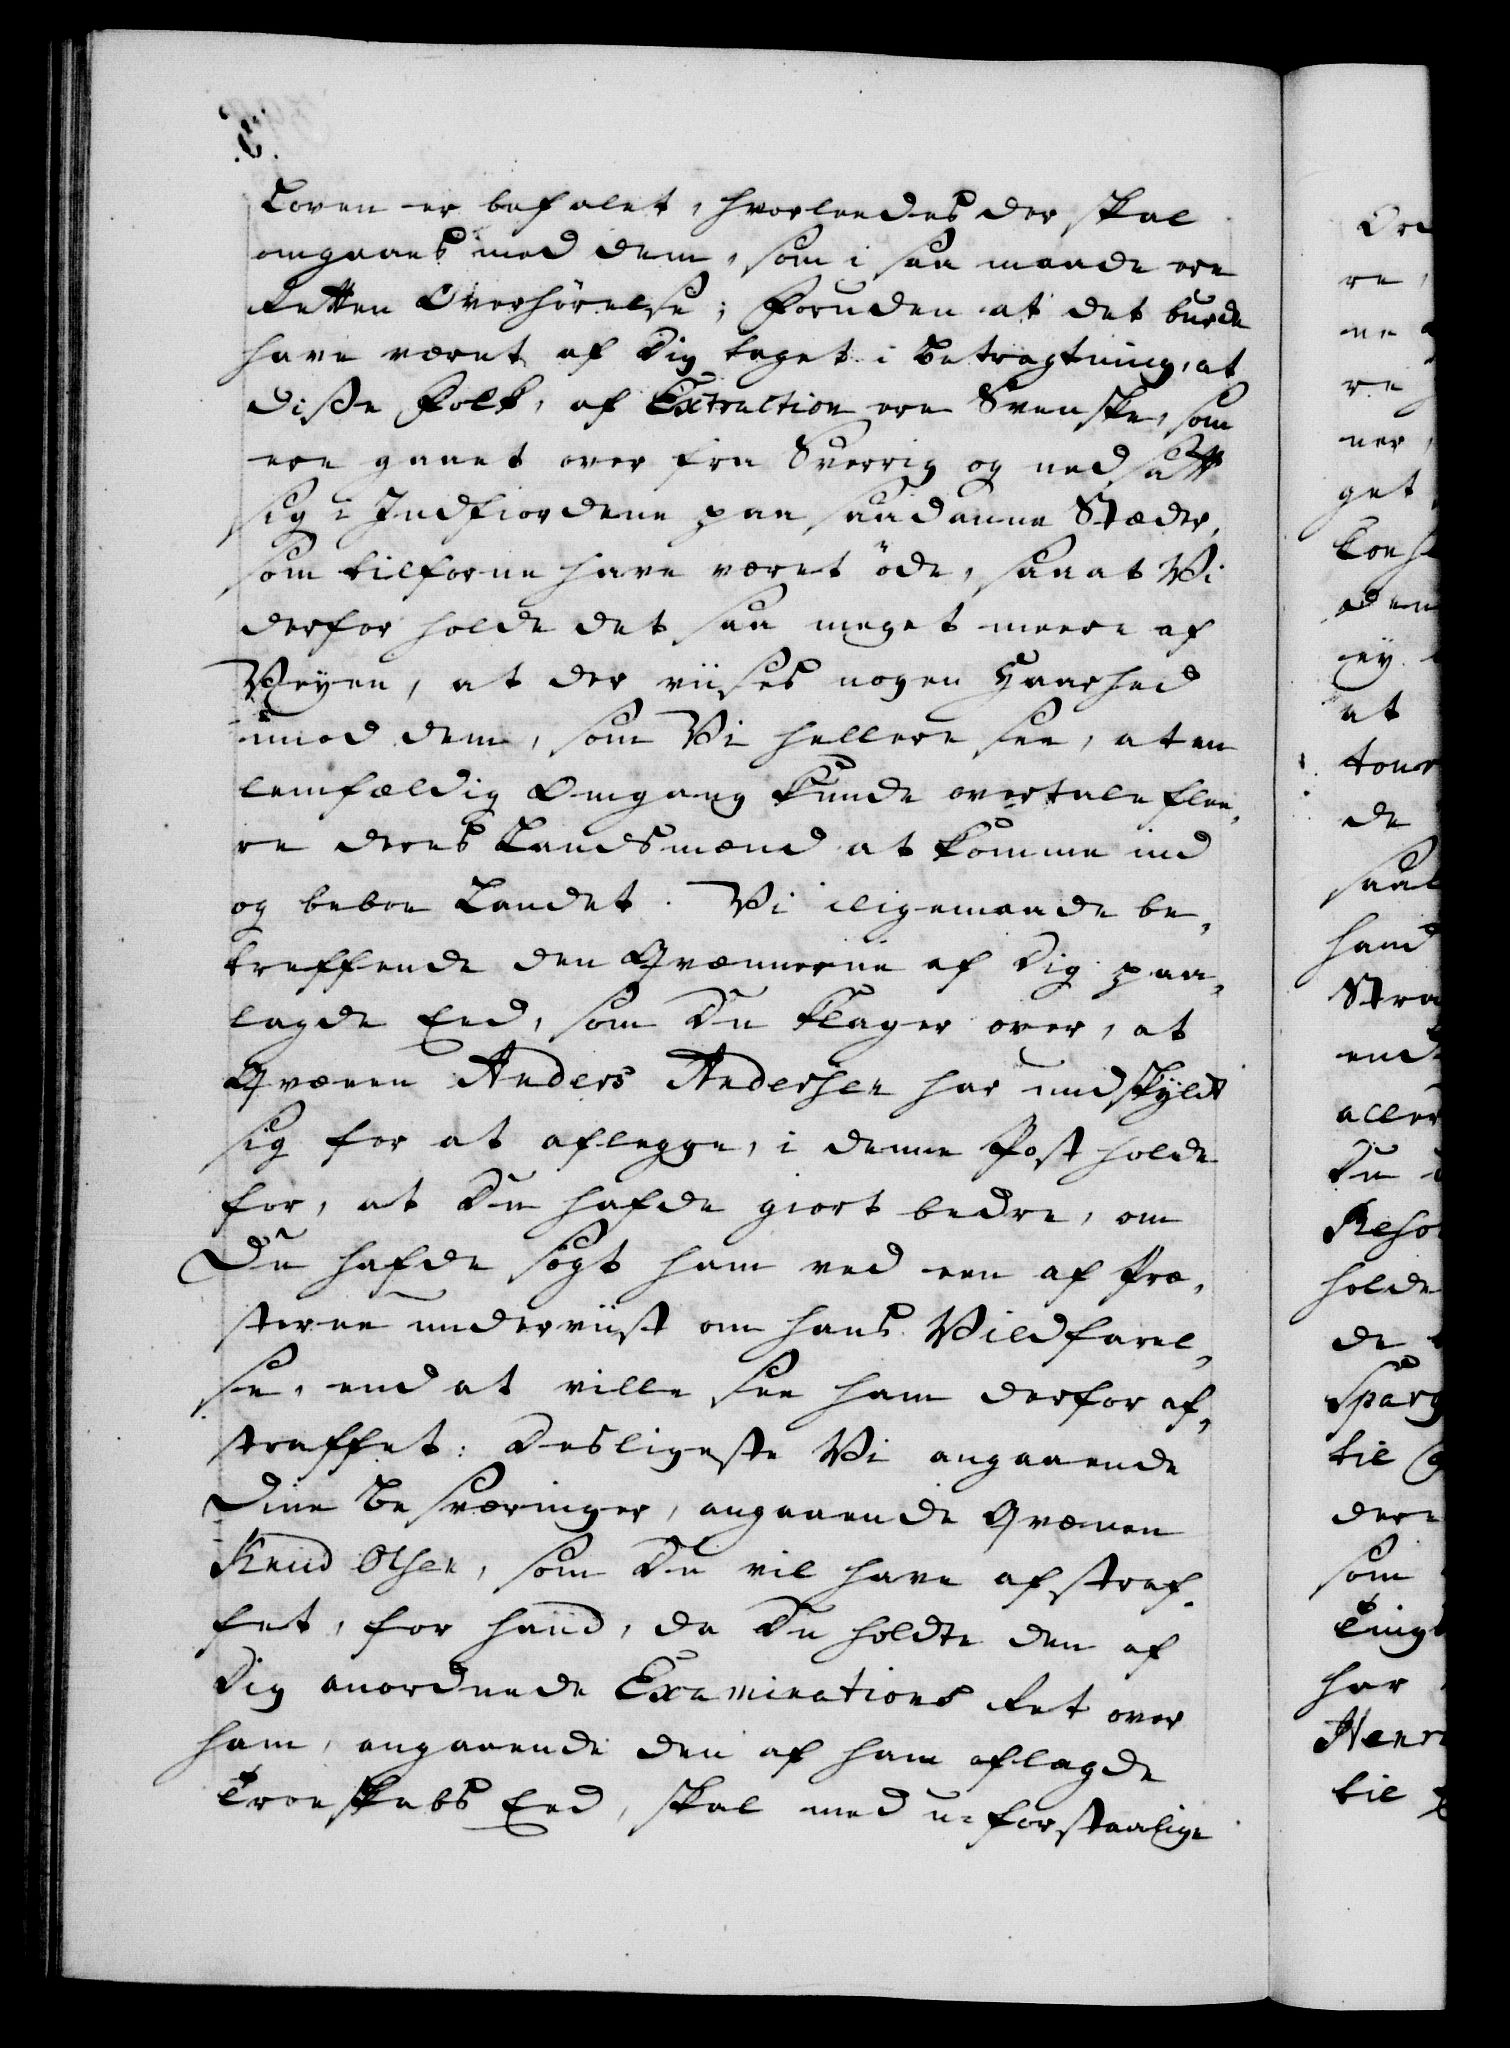 Loven er befalet, hvorleedes der skal
omgaaes med dem, som i saa maade ere
Retten Overhørelse; Foruden at det burde
have været af Dig taget i Betragtning, at
disse Folk, af Extraction ere Svenske, som
ere gaaet over fra Sverrig og nedsatt
sig i Indfiordene paa saadanne Stæder,
som tilforne have været øde, saa at Vi
derfor holde det saa meget meere af
Veyen, at der viises nogen Haarhed
imod dem, som Vi hellere see, at en
lemfældig Omgang kunde overtale flee,
re deres Landsmænd at komme ind
og beboe Landet. Vi iligemaade be,
treffende den Qvænnerne af Dig paa,
lagde Eed, som Du klager over, at
Qvænen Anders Andersen har undskyldt
sig for at aflegge, i denne Post holde
for, at Du hafde giort bedre, om
Du hafde søgt ham ved een af Præ,
sterne underviist om hans Vildfarel,
se, end at ville see ham derfor af,
straffet: Desligeste Vi angaaende
Dine Besværinger, angaaende Qvænen
Knud Olsen, som Du vil have afstraf,
fet, for hand, da Du holdte den af
Dig anordnede Examinations Ret over
ham, angaaende den af ham aflagde
Troeskabs Eed, skal med u-forstaalige